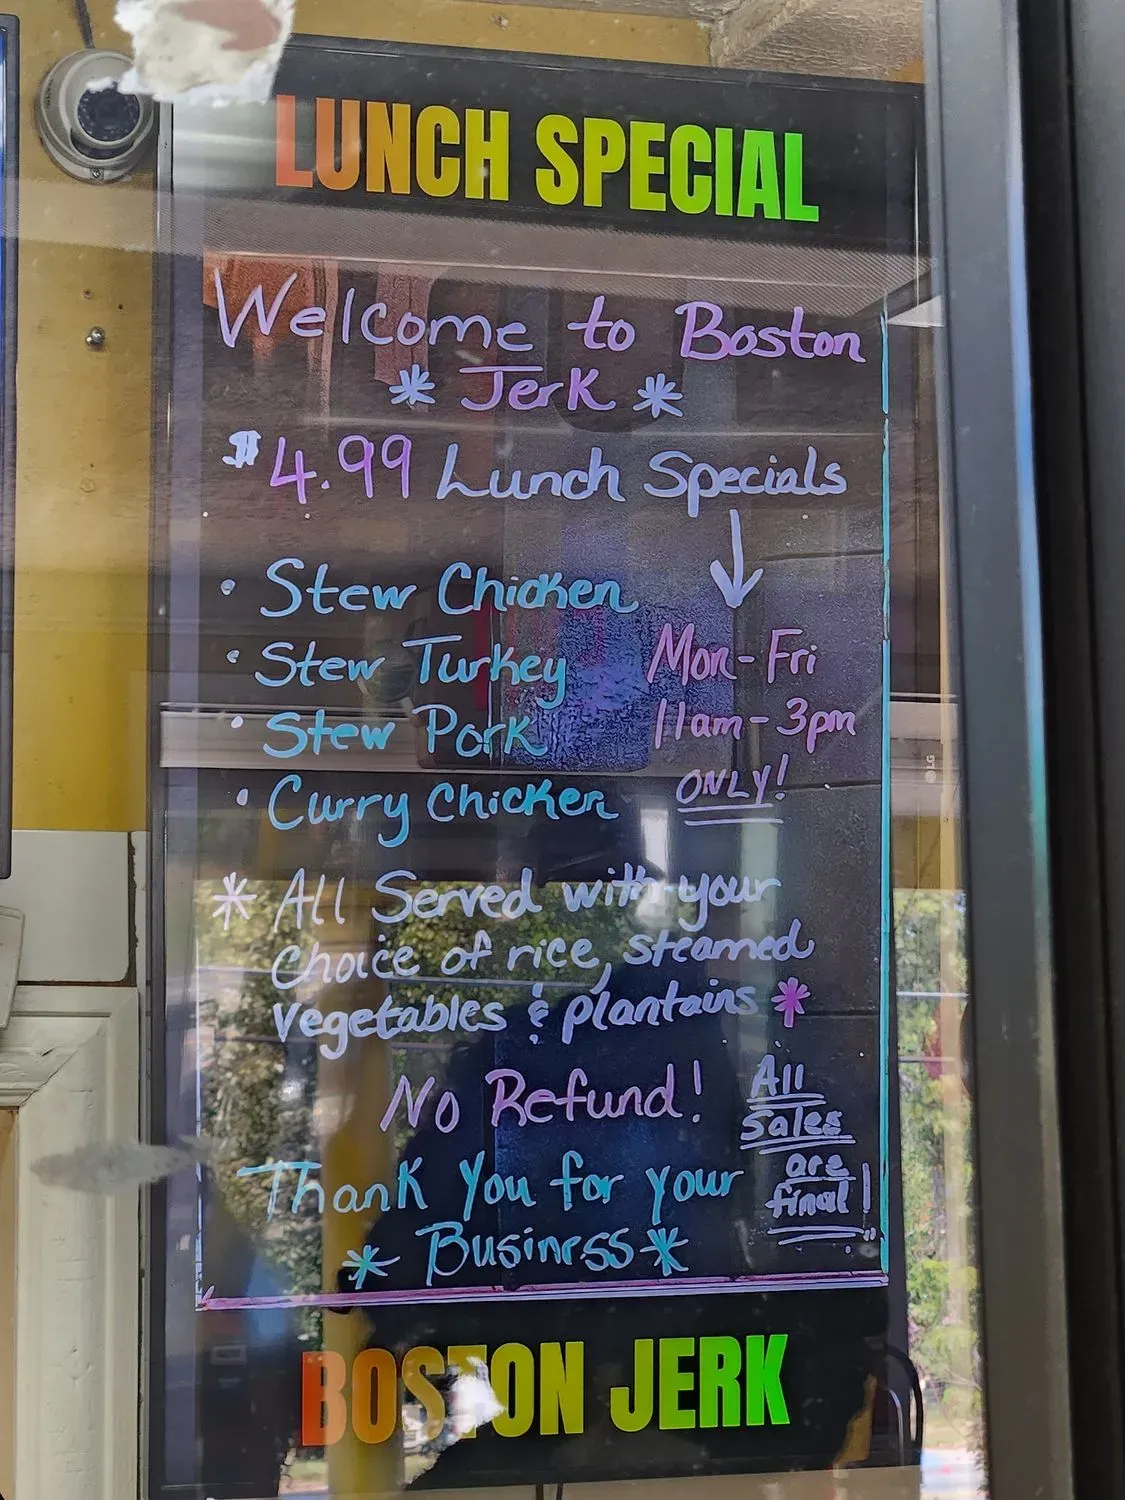 LUNCH SPECIAL
Welcome to Boston
* Jerk *
$4.99 Lunch Specials
• Stew Chicken
• Stew Turkey
• Stew Pork
• Curry Chicken
Mon-Fri
11am-3pm
ONLY!
* All Served with your
Choice of rice, steamed
vegetables & plantains *
No Refund!
All
Sales
are
final!
Thank you for your
* Business *
BOSTON JERK
LG